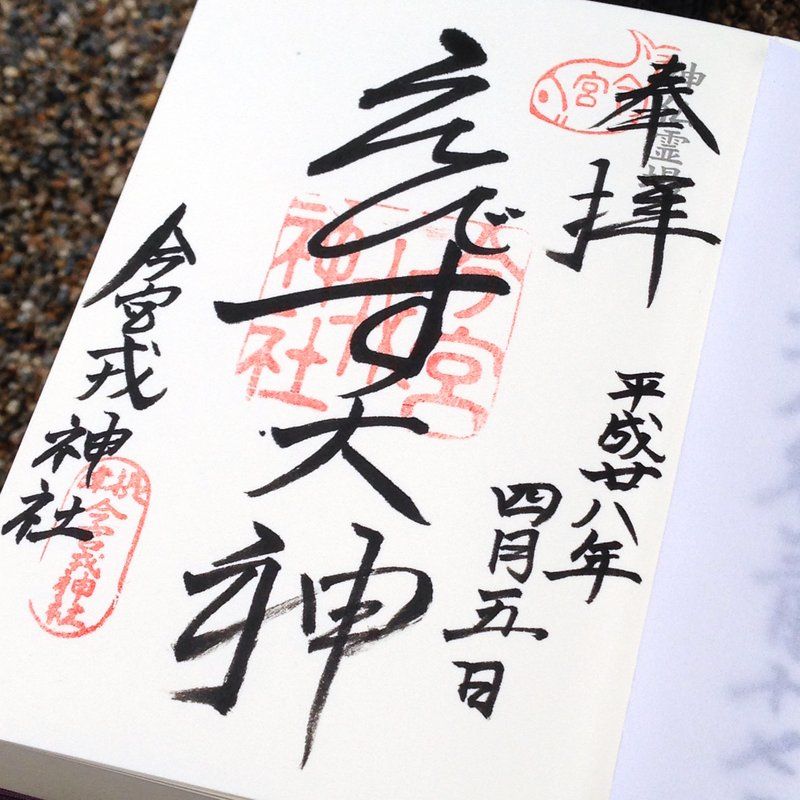 奉拝
平成廿八年
四月五日
えびす大神
今宮戎神社
今宮
神仏霊場
今宮戎神社
今宮戎神社